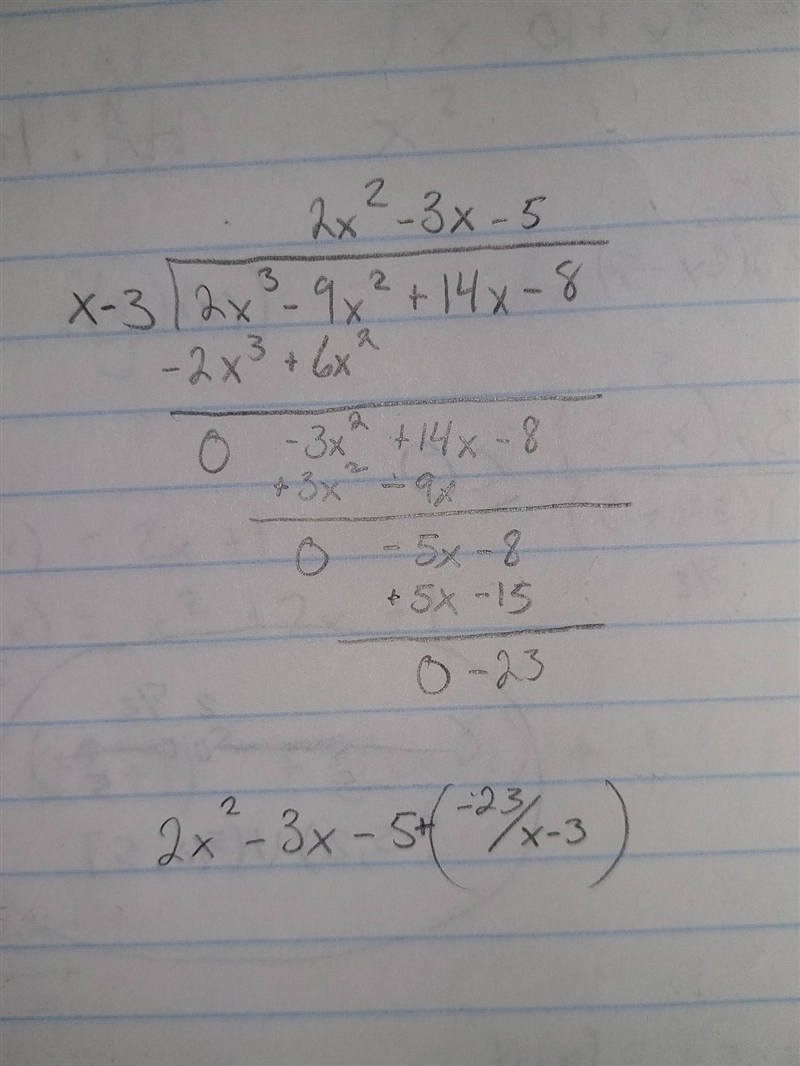 2x² - 3x - 5
x - 3 | 2x³ - 9x² + 14x - 8
-2x³ + 6x²
0 -3x² + 14x - 8
+3x² - 9x
0 -5x - 8
+5x - 15
0 - 23
2x² - 3x - 5 + (-23/x-3)